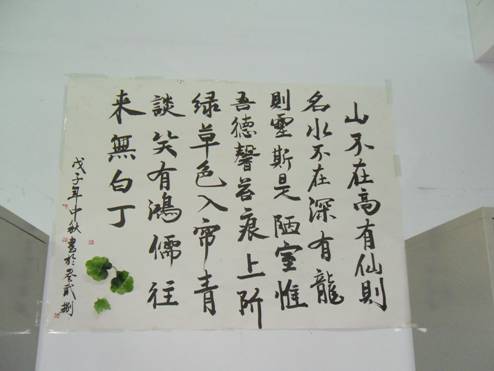 山不在高有仙則
名水不在深有龍
則靈斯是陋室惟
吾德馨苔痕上阶
绿草色入帘青
談笑有鴻儒往
来無白丁
戊子年中秋書於零貳捌